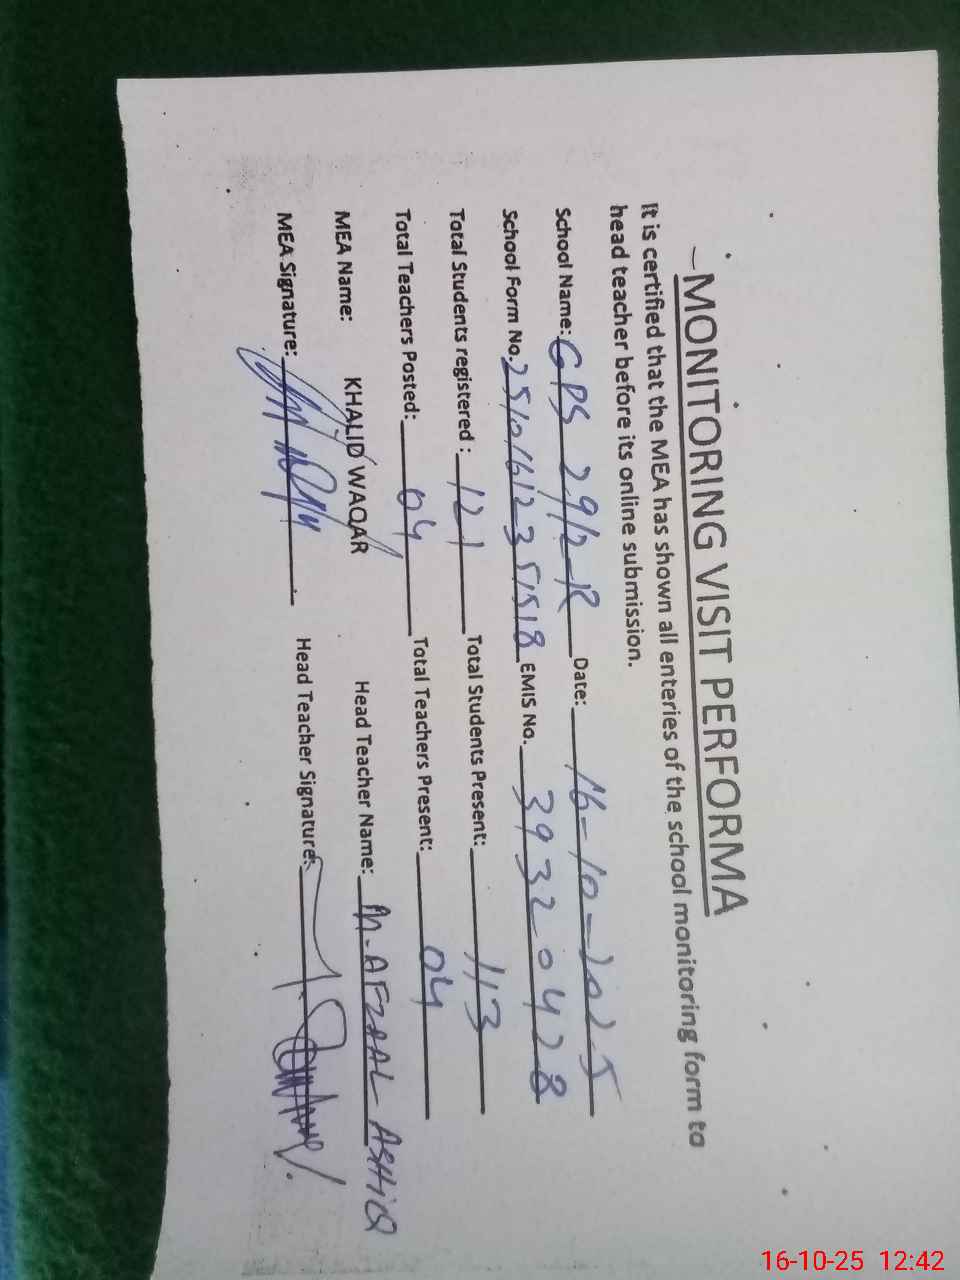 MONITORING VISIT PERFORMA
It is certified that the MEA has shown all enteries of the school monitoring form to
head teacher before its online submission.
School Name: GPS 29/2-R Date: 16-10-2025
School Form No. 25101612351518 EMIS No. 39320428
Total Students registered : 121 Total Students Present: 113
Total Teachers Posted: 04 Total Teachers Present: 04
MEA Name: KHALID WAQAR Head Teacher Name: M-AFZAAL ASHIQ
MEA Signature: Head Teacher Signature:
16-10-25 12:42